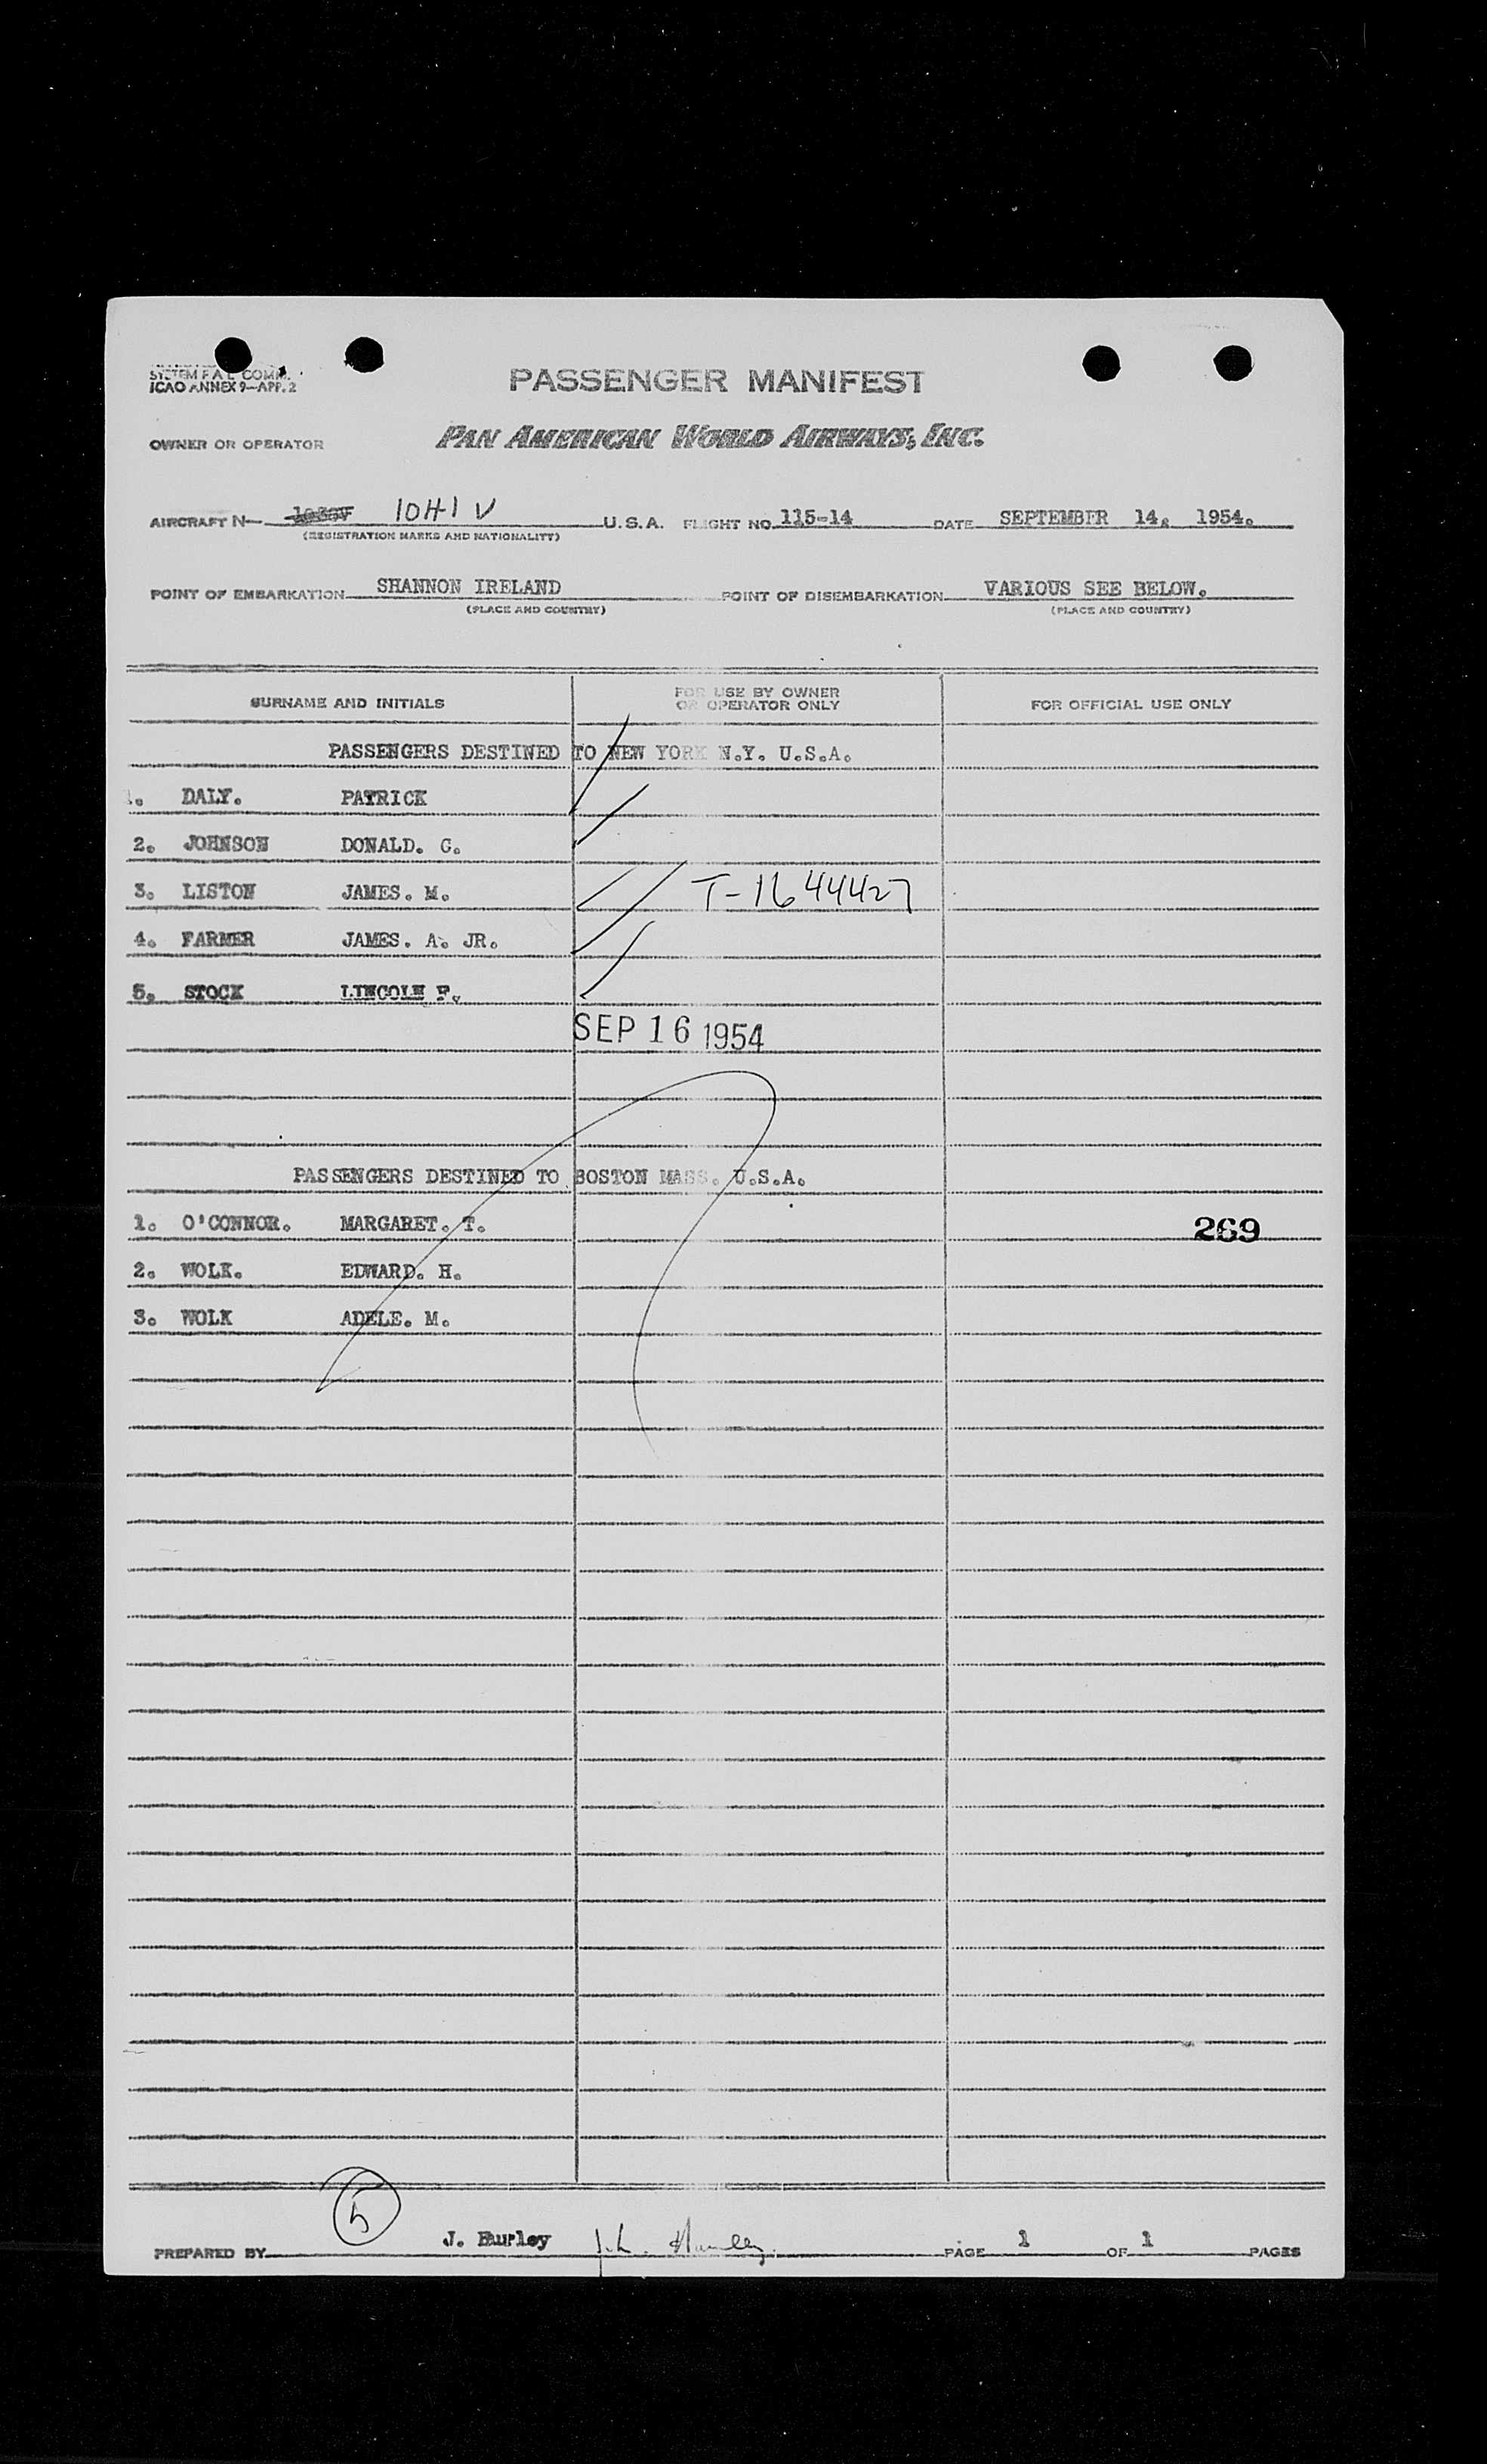 SYSTEM F.A.L. COMM.
ICAO ANNEX 9—APP. 2
PASSENGER MANIFEST
OWNER OR OPERATOR PAN AMERICAN WORLD AIRWAYS, INC.
AIRCRAFT N— 10H1V U.S.A. FLIGHT NO. 115-14 DATE SEPTEMBER 14, 1954.
(REGISTRATION MARKS AND NATIONALITY)
POINT OF EMBARKATION SHANNON IRELAND POINT OF DISEMBARKATION VARIOUS SEE BELOW.
(PLACE AND COUNTRY) (PLACE AND COUNTRY)
SURNAME AND INITIALS FOR USE BY OWNER OR OPERATOR ONLY FOR OFFICIAL USE ONLY
PASSENGERS DESTINED TO NEW YORK N.Y. U.S.A.
1. DALY. PATRICK
2. JOHNSON DONALD. C.
3. LISTON JAMES. M. T-1644427
4. FARMER JAMES. A. JR.
5. STOCK LINCOLN F.
SEP 16 1954
PASSENGERS DESTINED TO BOSTON MASS. U.S.A.
1. O'CONNOR. MARGARET. T. 269
2. WOLK. EDWARD. H.
3. WOLK ADELE. M.
5
PREPARED BY J. Hurley PAGE 1 OF 1 PAGES